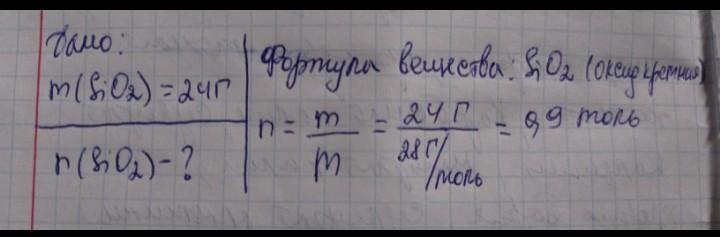 Дано:
m(SiO2) = 24г
n(SiO2) - ?
Формула вещества: SiO2 (оксид кремния)
n = m/M = 24 г/28 г/моль = 0,9 моль